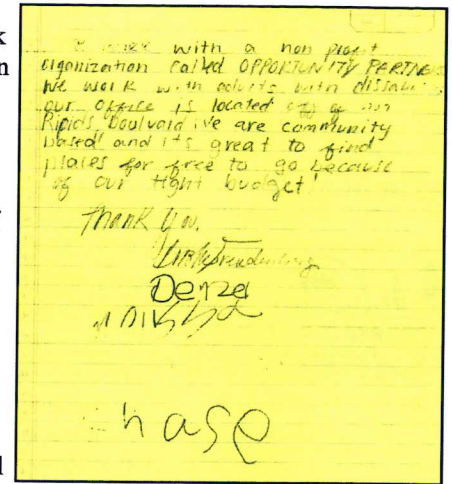 work with a non profit
organization called OPPORTUNITY
we work with adults with dissabi
our office is located
Ripids Boulvard we are community
based and it's great to find
places for free to go because
of our tight budget!
Thank You,
hase